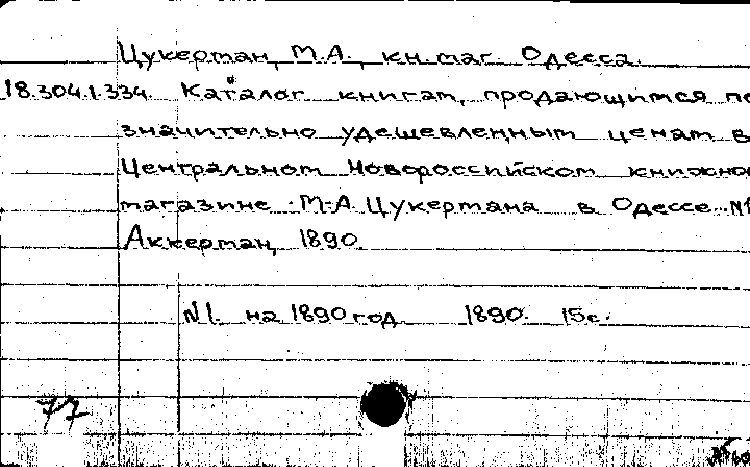 Цукерман, М.А., кн. маг. Одесса.
18.304.1.334. Каталог книгам, продающимся по
значительно удешевленным ценам в
Центральном Новороссийском книжно
магазине М.А. Цукермана в Одессе. №1
Аккерман, 1890.
№1. на 1890 год 1890. 15с.
77